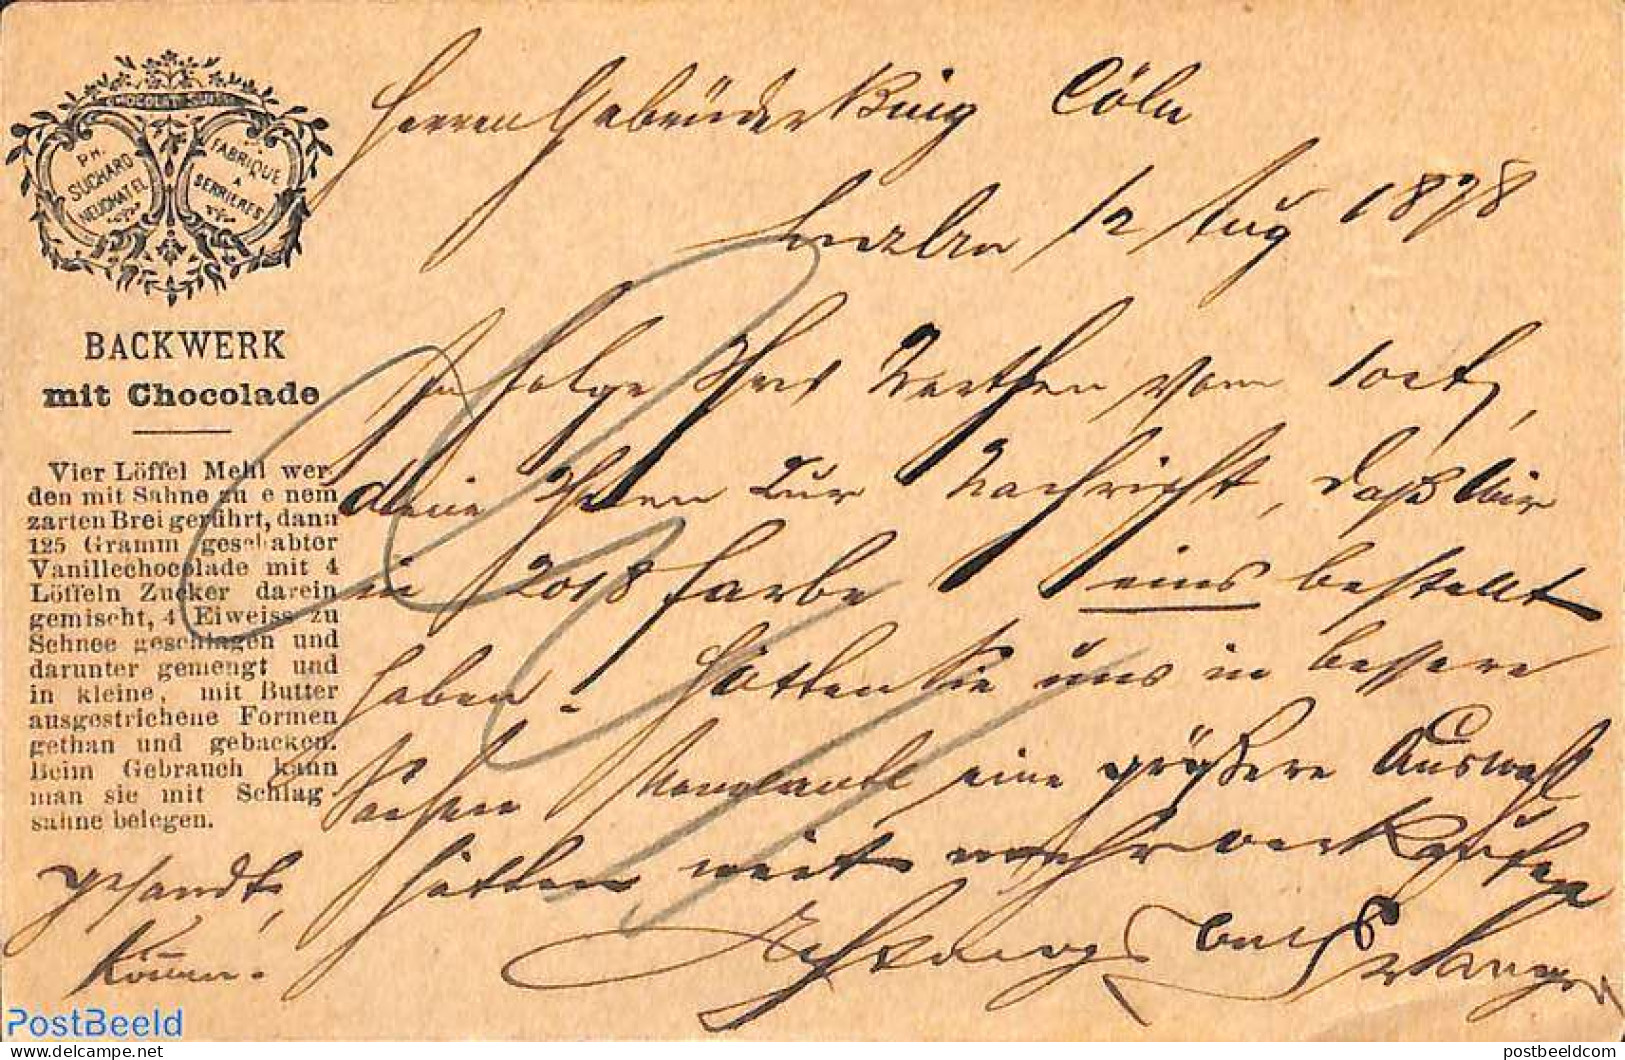 CHOCOLAT SUISSE
PH. SUCHARD NEUCHATEL
FABRIQUE A SERRIERES
BACKWERK
mit Chocolade
Vier Löffel Mehl wer-
den mit Sahne zu e nem
zarten Brei gerührt, dann
125 Gramm geschabter
Vanillechocolade mit 4
Löffeln Zucker darein
gemischt, 4 Eiweiss zu
Schnee geschlagen und
darunter gemengt und
in kleine, mit Butter
ausgestrichene Formen
gethan und gebacken.
Beim Gebrauch kann
man sie mit Schlag-
sahne belegen.
Herren Gebrüder Bing Cöln
12 Aug 1878
In folge Ihres Werthen vom 10ct,
diene Ihnen zur Nachricht, daß wir
in 2018 farbe 1 eins bestellt
haben. Hätten Sie uns in bessere
Sachen eine größere Auswahl
gesandt, hätten weit mehr verkaufen
können.
Achtungs
PostBeeld
postbeeldcom